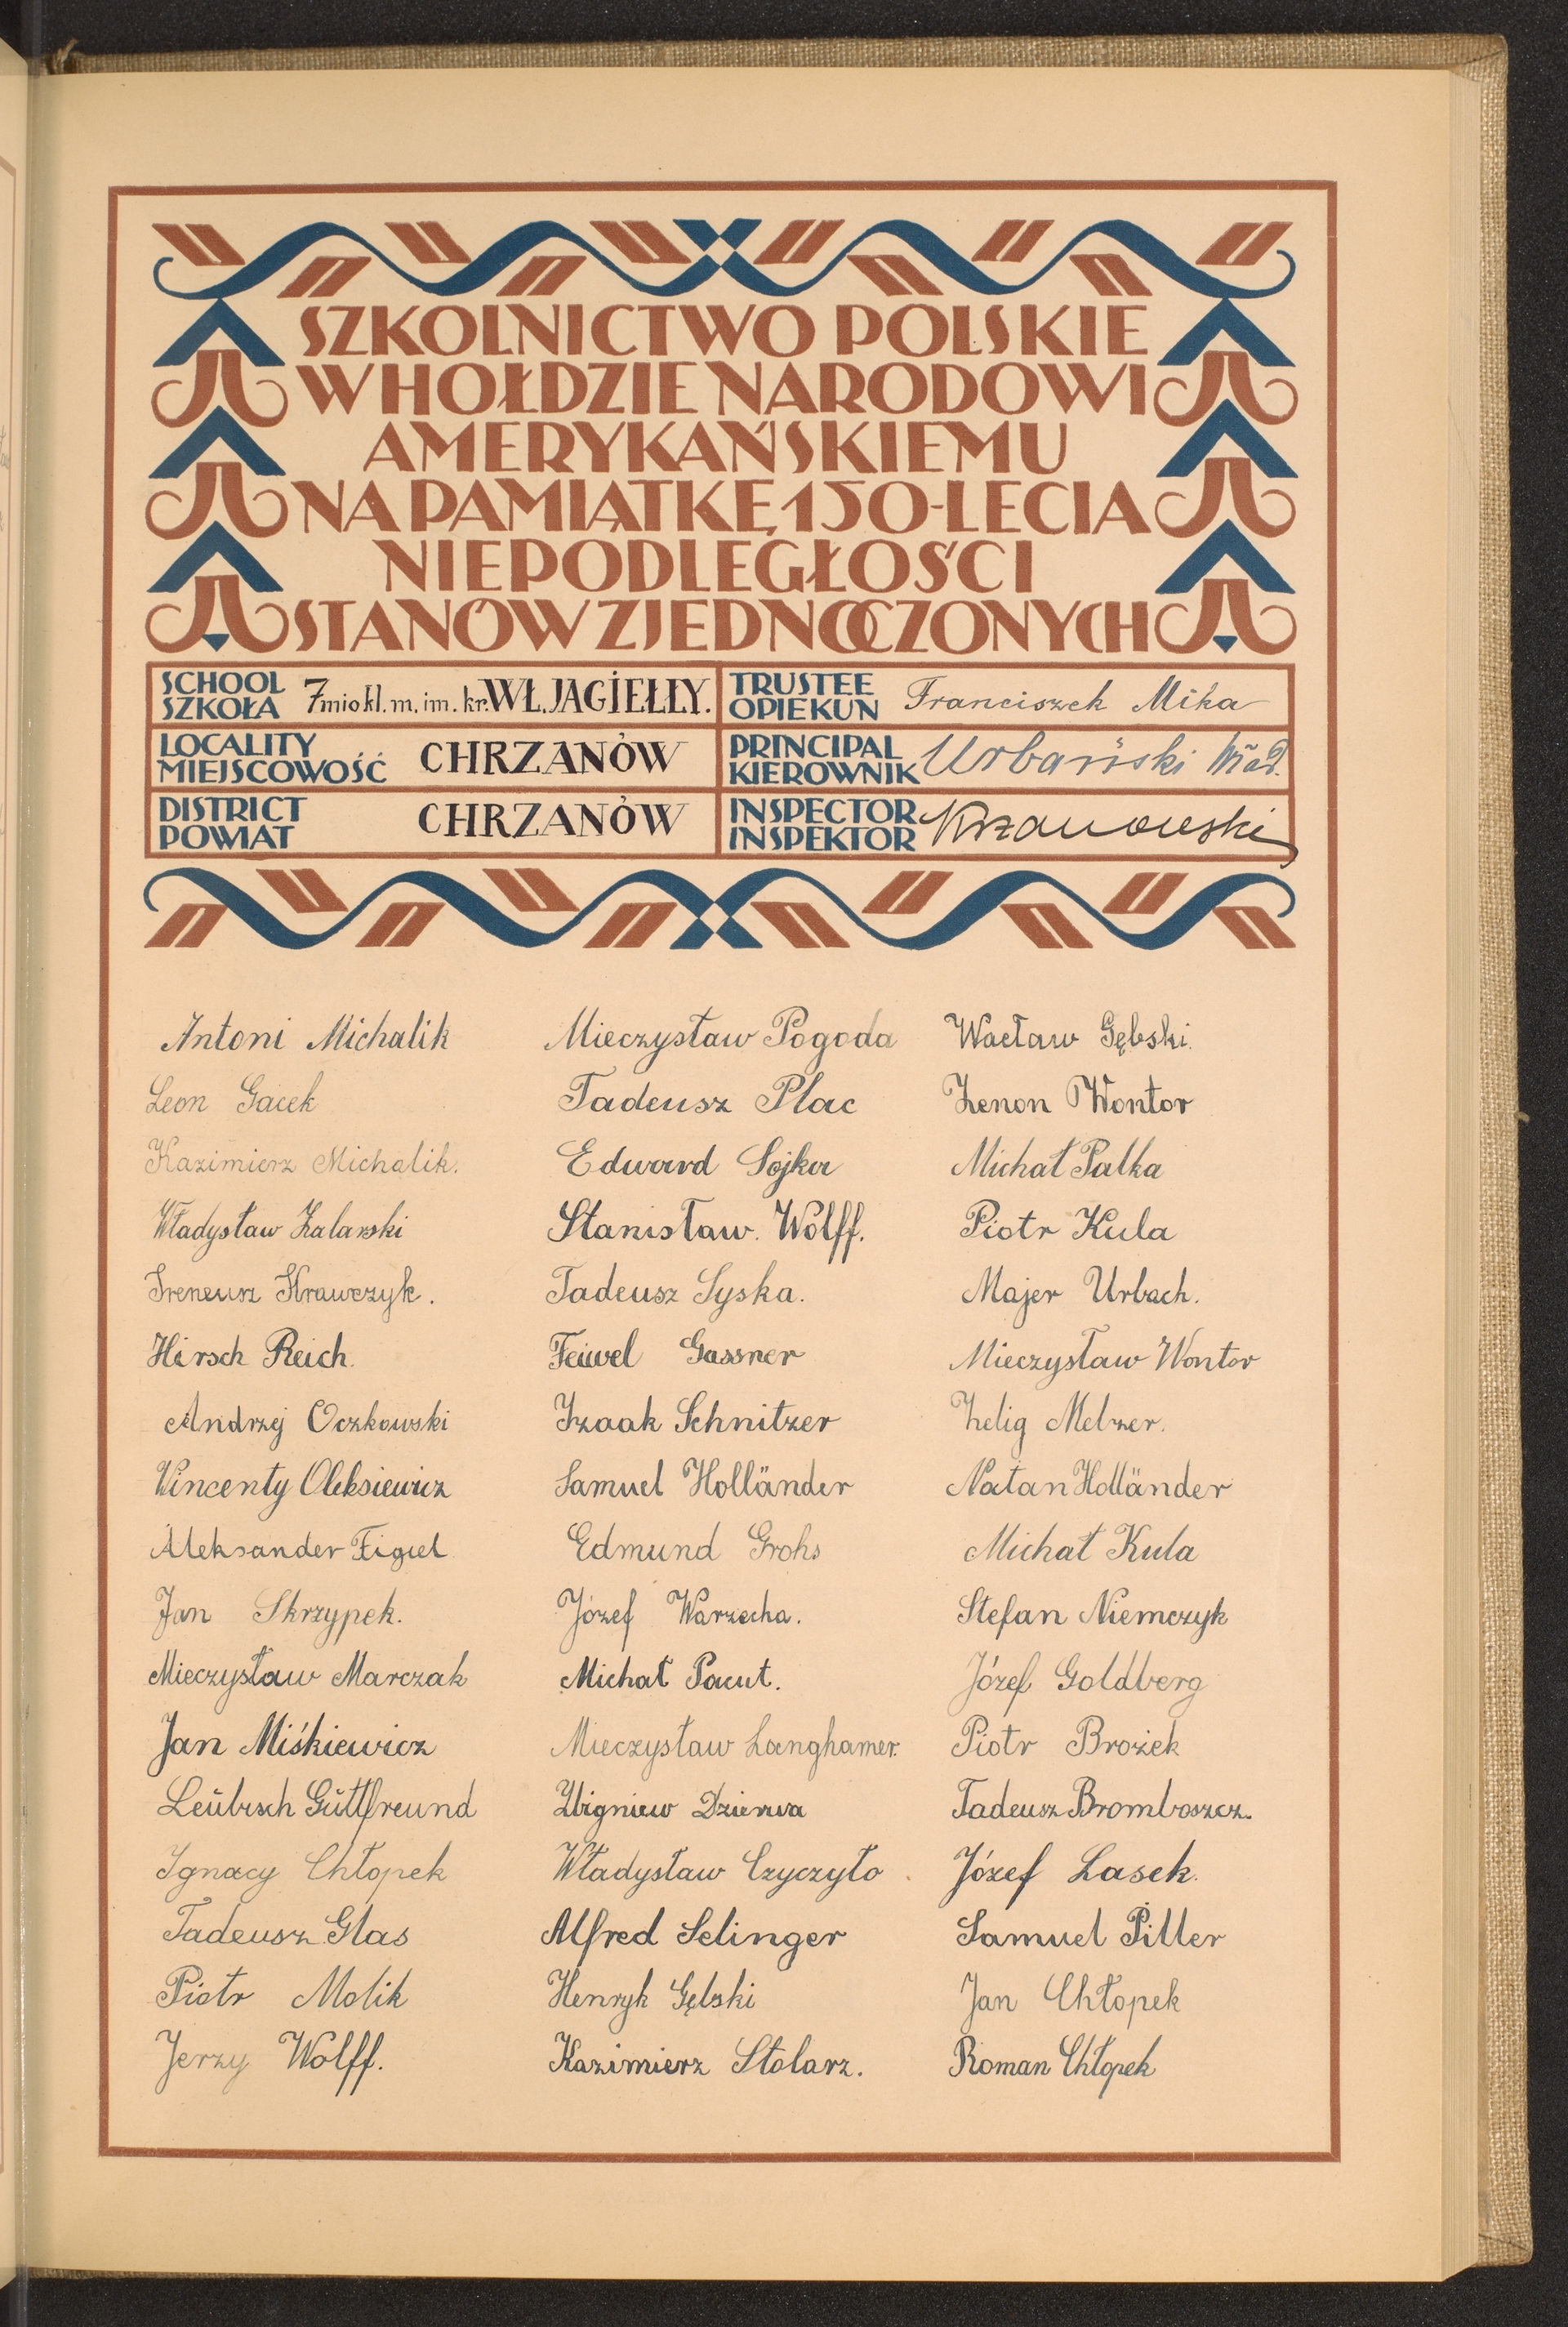 SZKOLNICTWO POLSKIE
W HOŁDZIE NARODOWI
AMERYKAŃSKIEMU
NA PAMIĄTKĘ 150-LECIA
NIEPODLEGŁOŚCI
STANÓW ZJEDNOCZONYCH
SCHOOL
SZKOŁA
7mio kl. m. im. kr. WŁ. JAGIEŁŁY.
TRUSTEE
OPIEKUN
Franciszek Mika
LOCALITY
MIEJSCOWOŚĆ
CHRZANÓW
PRINCIPAL
KIEROWNIK
Urbański Wład.
DISTRICT
POWIAT
CHRZANÓW
INSPECTOR
INSPEKTOR
Krzanowski
Antoni Michalik
Leon Gacek
Kazimierz Michalik.
Władysław Zalarski
Ireneusz Krawczyk.
Hirsch Reich.
Andrzej Oczkowski
Wincenty Oleksiewicz
Aleksander Figiel
Jan Skrzypek.
Mieczysław Marczak
Jan Miśkiewicz
Leübisch Güttfreund
Ignacy Chłopek
Tadeusz Glas
Piotr Molik
Jerzy Wolff.
Mieczysław Pogoda
Tadeusz Plac
Edward Sojka
Stanisław. Wolff.
Tadeusz Syska.
Feiwel Gassner
Izaak Schnitzer
Samuel Holländer
Edmund Grohs
Józef Warzecha.
Michał Pacut.
Mieczysław Langhamer.
Zbigniew Dzierwa
Władysław Czyczyło
Alfred Selinger
Henryk Gębski
Kazimierz Stolarz.
Wacław Gębski.
Zenon Wontor
Michał Palka
Piotr Kula
Majer Urbach.
Mieczysław Wontor
Zelig Melzer.
Natan Holländer
Michał Kula
Stefan Niemczyk
Józef Goldberg
Piotr Brożek
Tadeusz Bromboszcz.
Józef Lasek.
Samuel Piller
Jan Chłopek
Roman Chłopek